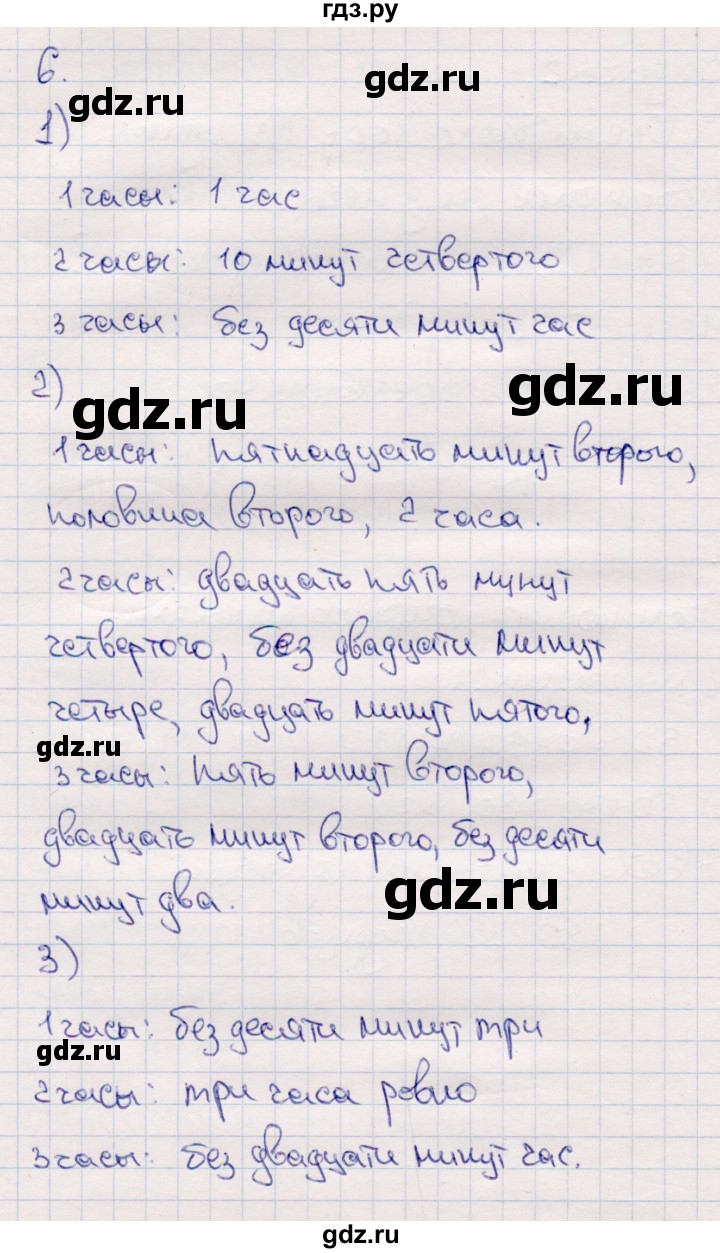 гдз.ру
6.
gdz.ru
gdz.ru
1)
1 часы: 1 час
2 часы: 10 минут четвертого
3 часы: без десяти минут час
2)
gdz.ru
gdz.ru
1 часы: пятнадцать минут второго,
половина второго, 2 часа.
2 часы: двадцать пять мунут
четвертого, без двадцати минут
четыре, двадцать минут пятого,
gdz.ru
3 часы: пять минут второго,
двадцать минут второго, без десяти
минут два.
gdz.ru
3)
1 часы: без десяти минут три
gdz.ru
2 часы: три часа ровно
3 часы: без двадцати минут час.
gdz.ru